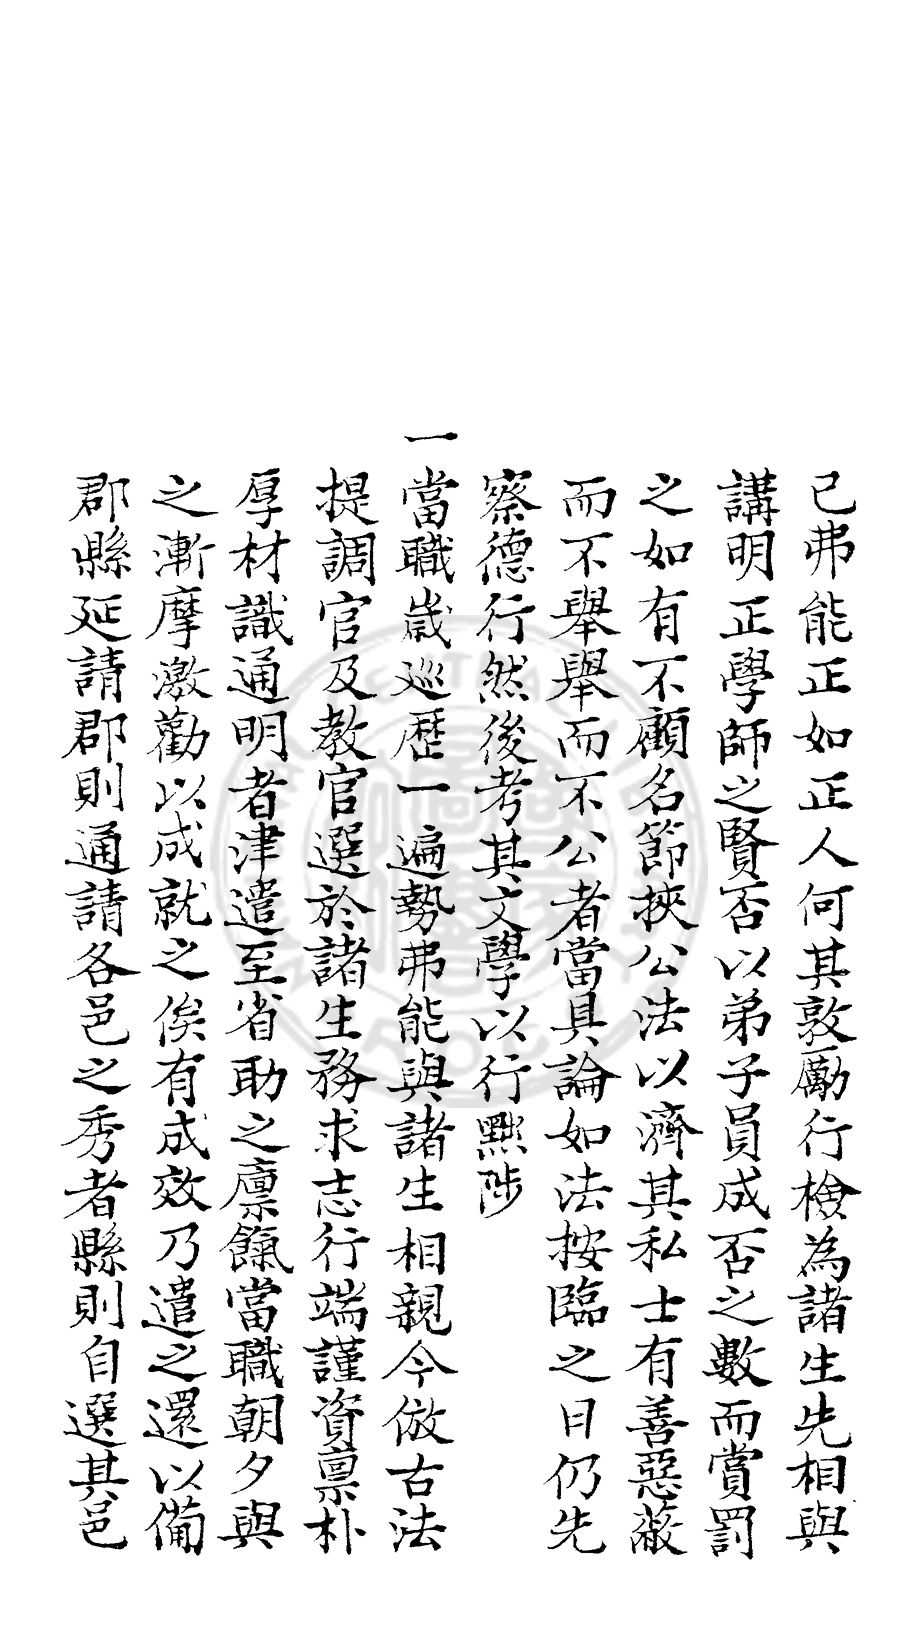 已弗能正如正人何其敦勵行檢為諸生先相與
講明正學師之賢否以弟子員成否之數而賞罰
之如有不顧名節挾公法以濟其私士有善惡蔽
而不舉舉而不公者當具論如法按臨之日仍先
察德行然後考其文學以行黜陟
一當職歲巡歷一遍勢弗能與諸生相親今倣古法
提調官及教官選於諸生務求志行端謹資禀朴
厚材識通明者津遣至省助之廪餼當職朝夕與
之漸摩激勸以成就之俟有成效乃遣之還以備
郡縣延請郡則通請各邑之秀者縣則自選其邑